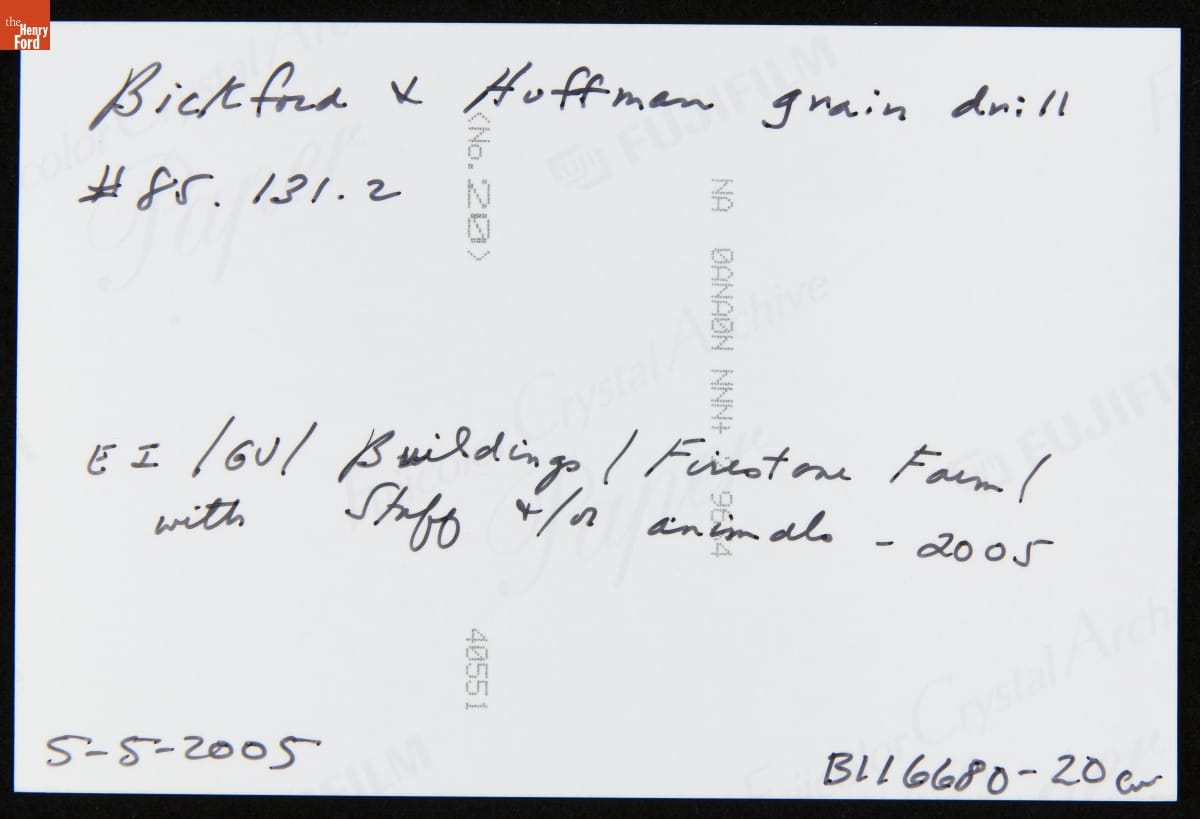 the Henry Ford
Bickford & Hoffman grain drill
#85.131.2
<No.20>
EI /GV/ Buildings / Firestone Farm/
with Staff +/or animals - 2005
40551
5-5-2005
B116680-20
FUJIFILM
Fujicolor Crystal Archive
Paper